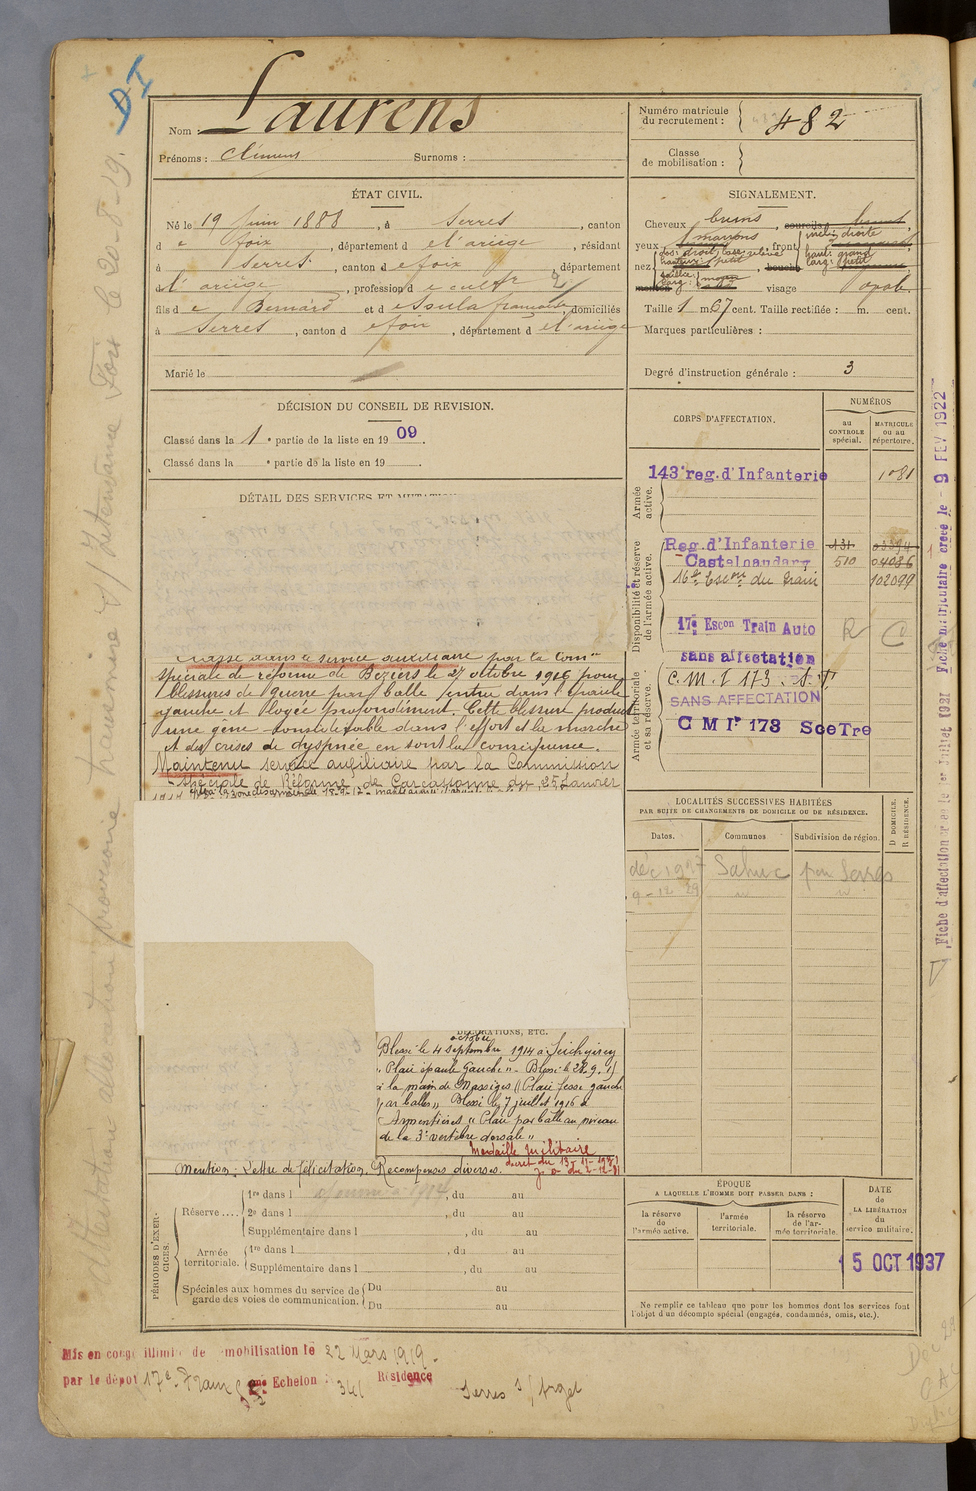 DI
Nom : Laurens
Prénoms : Clément Surnoms :
Numéro matricule du recrutement : 482
Classe de mobilisation :
ÉTAT CIVIL.
Né le 19 Juin 1888, à Serres, canton
d e foix, département d e l'ariège, résidant
à Serres, canton d e foix, département
d l'ariège, profession d e cultr
fils d e Bernard et d e Soula françoise, domiciliés
à Serres, canton d e foix, département d e l'ariège
Marié le
SIGNALEMENT.
Cheveux bruns, sourcils bruns,
yeux marrons, front incli: droite
haut: grand
larg: petit
nez dos: droit base relevée
hauteur: petit, bouche
saillie:
larg: moyen
menton visage oval.
Taille 1 m. 67 cent. Taille rectifiée : m. cent.
Marques particulières :
Degré d'instruction générale : 3
DÉCISION DU CONSEIL DE REVISION.
Classé dans la 1e partie de la liste en 1909.
Classé dans la e partie de la liste en 19 .
CORPS D'AFFECTATION.
NUMÉROS
au CONTROLE spécial.
MATRICULE ou au répertoire.
Armée active.
143e reg. d'Infanterie 1081
Disponibilité et réserve de l'armée active.
Reg. d'Infanterie 131
Castelnaudary 510 04086
16e Escon du Train 102099
17e Escon Train Auto R C
sans affectation
Armée territoriale et sa réserve.
C. M. I 173. S. T.
SANS AFFECTATION
C M Ir 173 SceTre
DÉTAIL DES SERVICES ET MUTATION
Classé dans le service auxiliaire par la Comon
spéciale de réforme de Béziers le 27 octobre 1916 pour
blessures de guerre par balle entrée dans l'épaule
gauche et logée profondément. Cette blessure produit
une gêne considérable dans l'effort et la marche
et des crises de dyspnée en sont la conséquence.
Maintenu service auxiliaire par la Commission
spéciale de Réforme de Carcassonne du 25 Janvier
LOCALITÉS SUCCESSIVES HABITÉES
PAR SUITE DE CHANGEMENTS DE DOMICILE OU DE RÉSIDENCE.
Dates. Communes Subdivision de région. D DOMICILE. R RÉSIDENCE.
déc 1927 Sahuc par Serres
9-12 29
DÉCORATIONS, ETC.
octobre
Blessé le 4 septembre 1914 à Seicheprey
"Plaie épaule Gauche" - Blessé le 28.9.15
à la main de Massiges "Plaie fesse gauche
par balle" Blessé le 7 juillet 1916 à
Armentières "Plaie par balle au niveau
de la 3e vertèbre dorsale"
Médaille Militaire
Mention : Lettre de félicitation. Récompenses diverses.
PÉRIODES D'EXERCICES.
Réserve ....
1re dans l , du au
2e dans l , du au
Supplémentaire dans l , du au
Armée territoriale.
1re dans l , du au
Supplémentaire dans l , du au
Spéciales aux hommes du service de garde des voies de communication.
Du au
Du au
ÉPOQUE
A LAQUELLE L'HOMME DOIT PASSER DANS :
la réserve de l'armée active.
l'armée territoriale.
la réserve de l'armée territoriale.
DATE de LA LIBÉRATION du service militaire.
15 OCT 1937
Ne remplir ce tableau que pour les hommes dont les services font l'objet d'un décompte spécial (engagés, condamnés, omis, etc.).
Mis en congé illimité de démobilisation le 22 Mars 1919.
par le dépôt 17e Train Echelon : 341 Résidence
Serres s/ Arget
Fiche d'affectation créée le 1er Juillet 1921 Fiche matriculaire créée le - 9 FEV 1922
Attestation allocation provisoire transmise s/ Intendance Foix le 20-8-19.